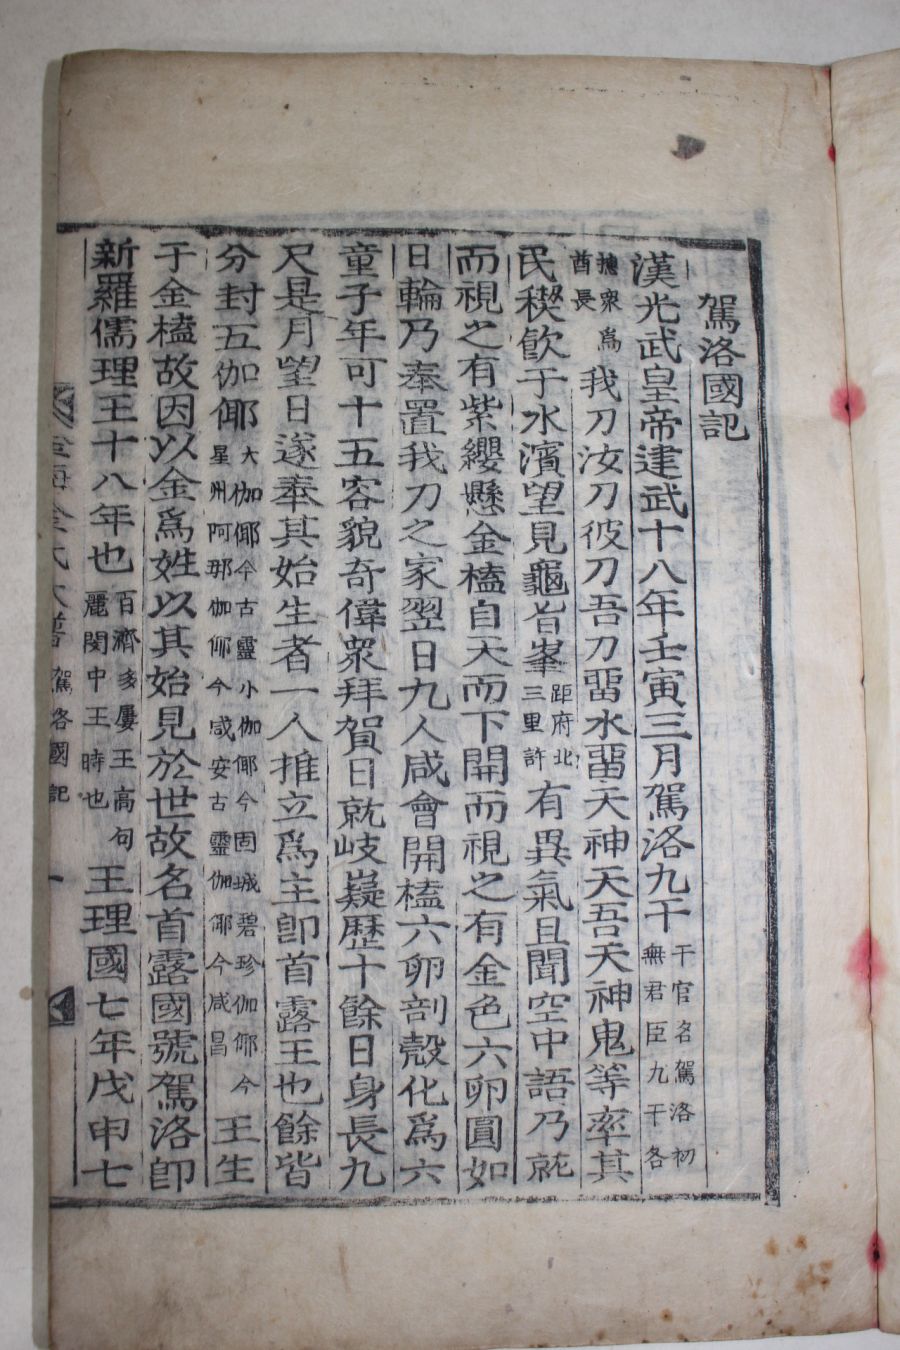 駕洛國記
漢光武皇帝建武十八年壬寅三月駕洛九干干官名駕洛初無君臣九干各
摠衆爲酋長我刀汝刀彼刀吾刀留水留天神天吾天神鬼等率其
民禊飮于水濱望見龜旨峯距府北三里許有異氣且聞空中語乃就
而視之有紫纓懸金榼自天而下開而視之有金色六卵圓如
日輪乃奉置我刀之家翌日九人咸會開榼六卵剖殼化爲六
童子年可十五容貌奇偉衆拜賀日就岐嶷歷十餘日身長九
尺是月望日遂奉其始生者一人推立爲主卽首露王也餘皆
分封五伽倻大伽倻今古靈小伽倻今固城碧珍伽倻今星州阿那伽倻今咸安古靈伽倻今咸昌王生
于金榼故因以金爲姓以其始見於世故名首露國號駕洛卽
新羅儒理王十八年也百濟多婁王高句麗閔中王時也王理國七年戊申七
金海金氏大譜 駕洛國記 一